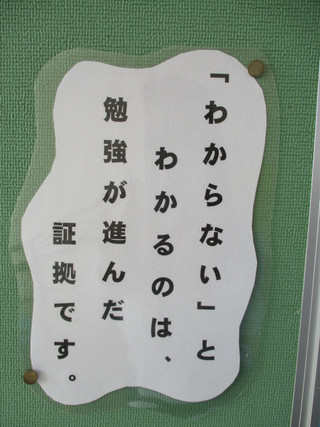 「わからない」と
わかるのは、
勉強が進んだ
証拠です。